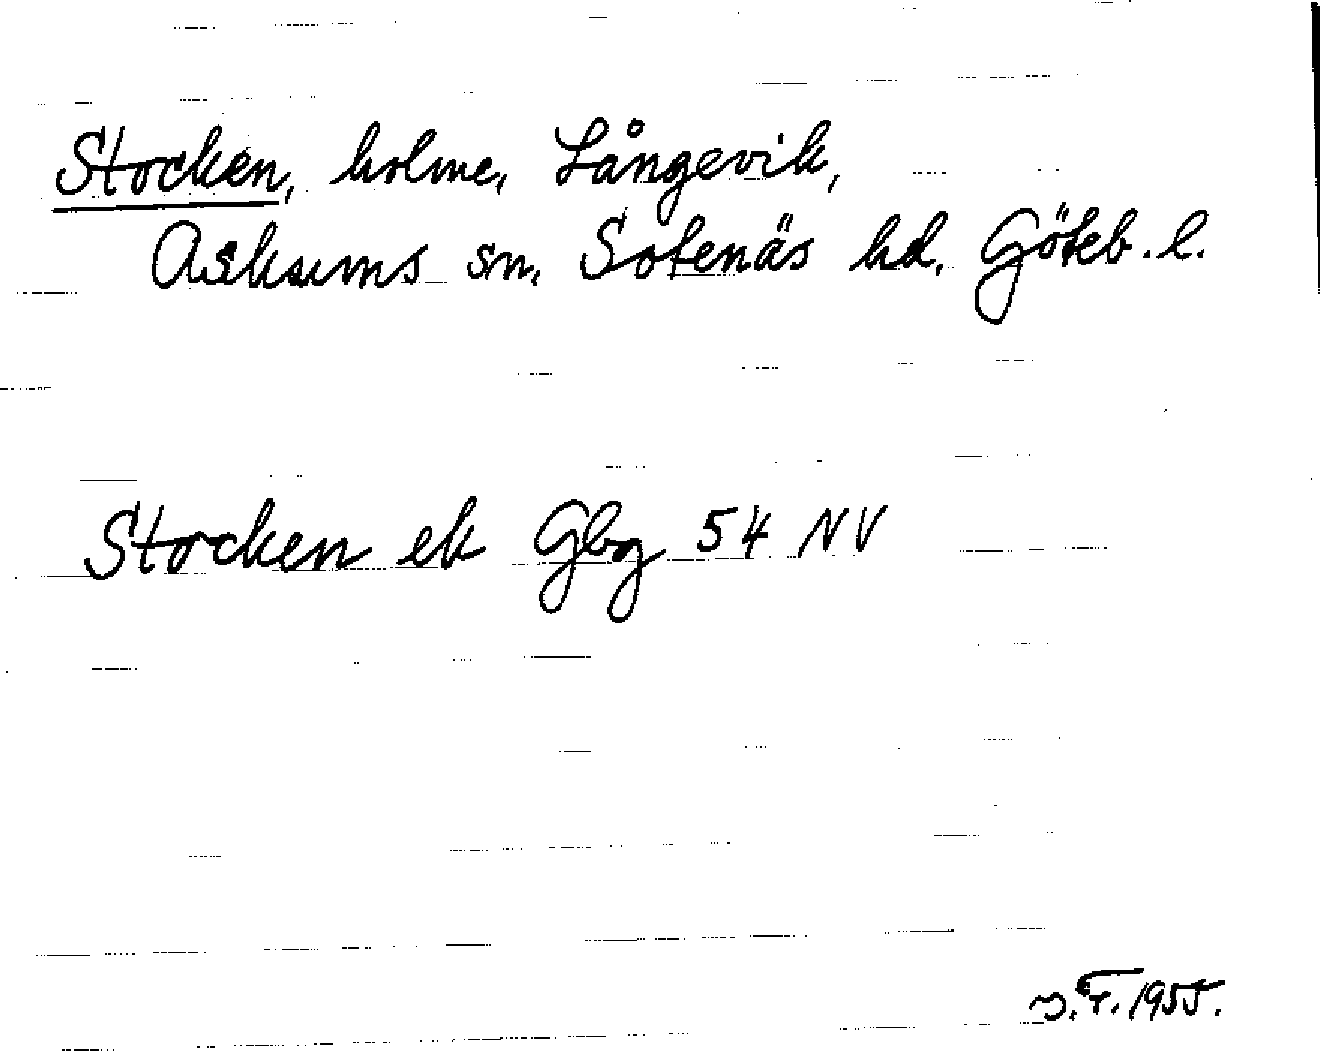 Stocken, holme, Långevik,
Askums sn, Sotenäs hd. Göteb. l.
Stocken ek Gbg 54 NV
F. 1955.